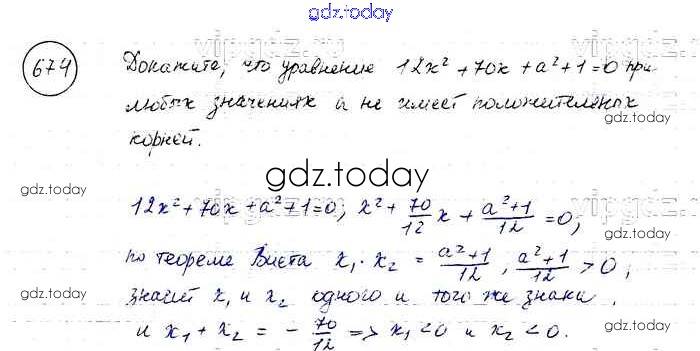 gdz.today
674 Докажите, что уравнение 12x² + 70x + a² + 1 = 0 при
любых значениях a не имеет положительных
корней.
gdz.today
gdz.today
gdz.today
12x² + 70x + a² + 1 = 0, x² + 70/12 x + (a² + 1)/12 = 0,
по теореме Виета x₁ · x₂ = (a² + 1)/12, (a² + 1)/12 > 0,
gdz.today
gdz.today
значит x₁ и x₂ одного и того же знака
и x₁ + x₂ = - 70/12 => x₁ < 0 и x₂ < 0.